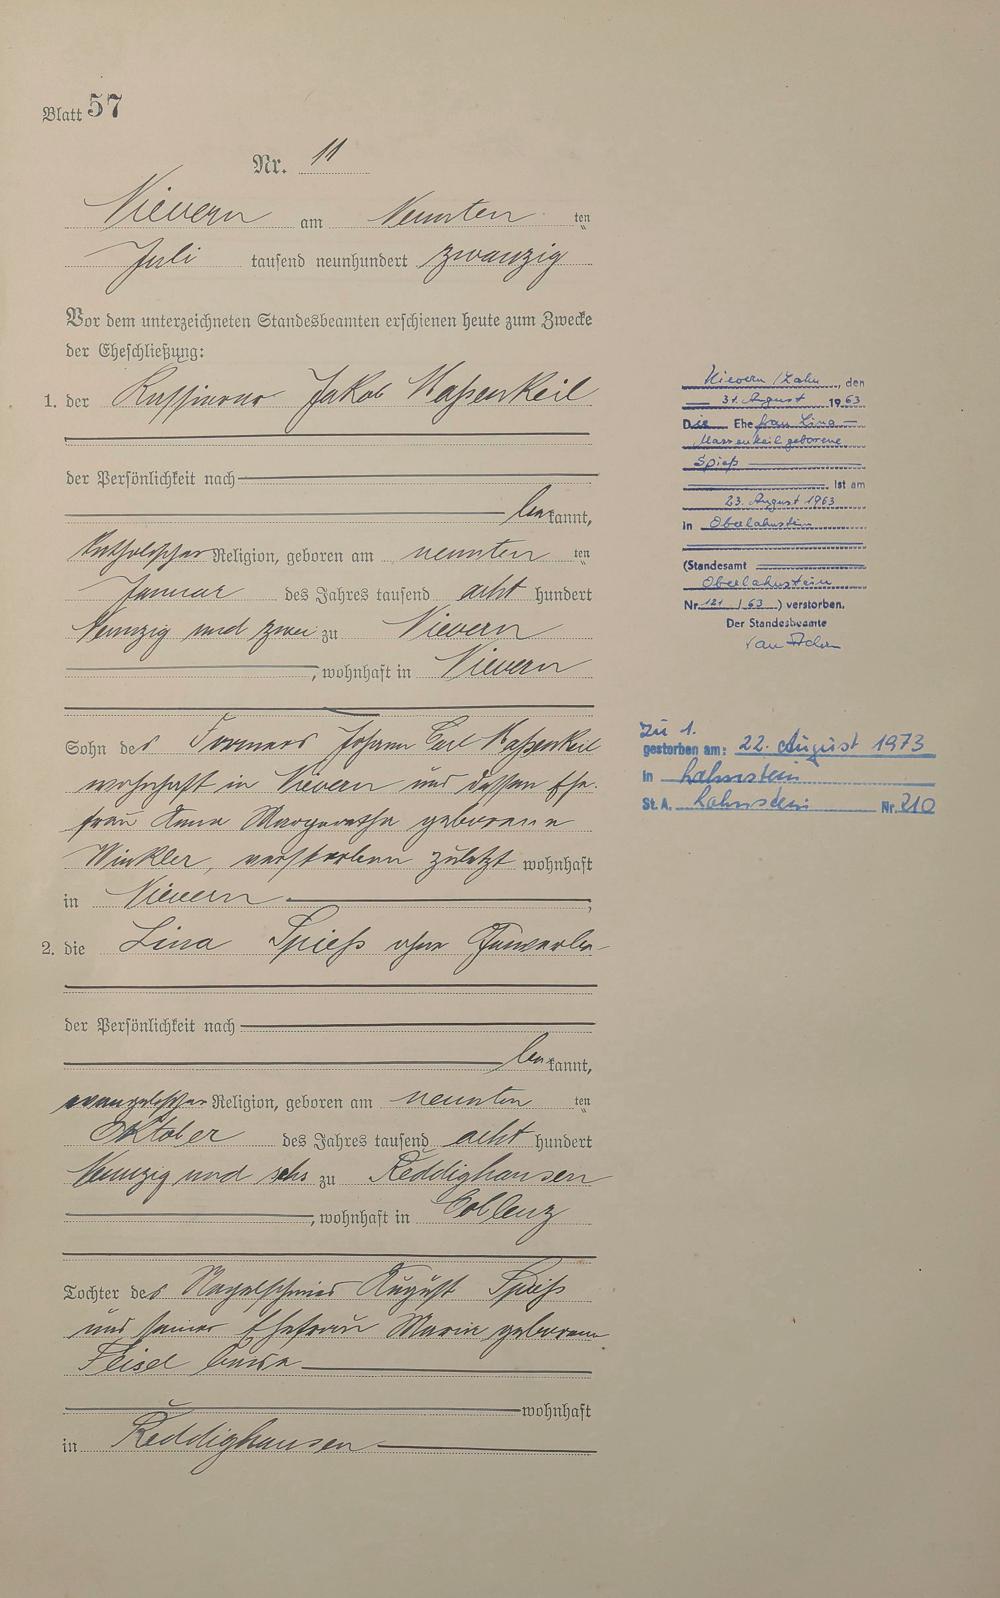 Blatt 57
Nr. 11
Nievern am Neunten ten
Juli tausend neunhundert zwanzig
Vor dem unterzeichneten Standesbeamten erschienen heute zum Zwecke
der Eheschließung:
1. der Jakob Maßenkeil
der Persönlichkeit nach
bekannt,
katholischer Religion, geboren am neunten ten
Januar des Jahres tausend acht hundert
Neunzig und zwei zu Nievern
, wohnhaft in Nievern
Sohn des Formers Johann Carl Maßenkeil
wohnhaft in Nievern und dessen Ehe-
frau Anna Margaretha geborene
Winkler, verstorben zuletzt wohnhaft
in Nievern ,
2. die Lina Spieß ohne Gewerbe
der Persönlichkeit nach
bekannt,
evangelischer Religion, geboren am neunten ten
Oktober des Jahres tausend acht hundert
Neunzig und sechs zu Reddighausen
, wohnhaft in Coblenz
Tochter des Nagelschmied August Spieß
und seiner Ehefrau Marie geborene
Feisel beide
wohnhaft
in Reddighausen
Nievern/Lahn, den
31. August 1963
Die Ehefrau Lina
Massenkeil geborene
Spieß
ist am
23. August 1963
in Oberlahnstein
(Standesamt
Oberlahnstein
Nr. 121/63) verstorben.
Der Standesbeamte
Zu 1.
gestorben am: 22. August 1973
in Lahnstein
St. A. Lahnstein Nr. 210